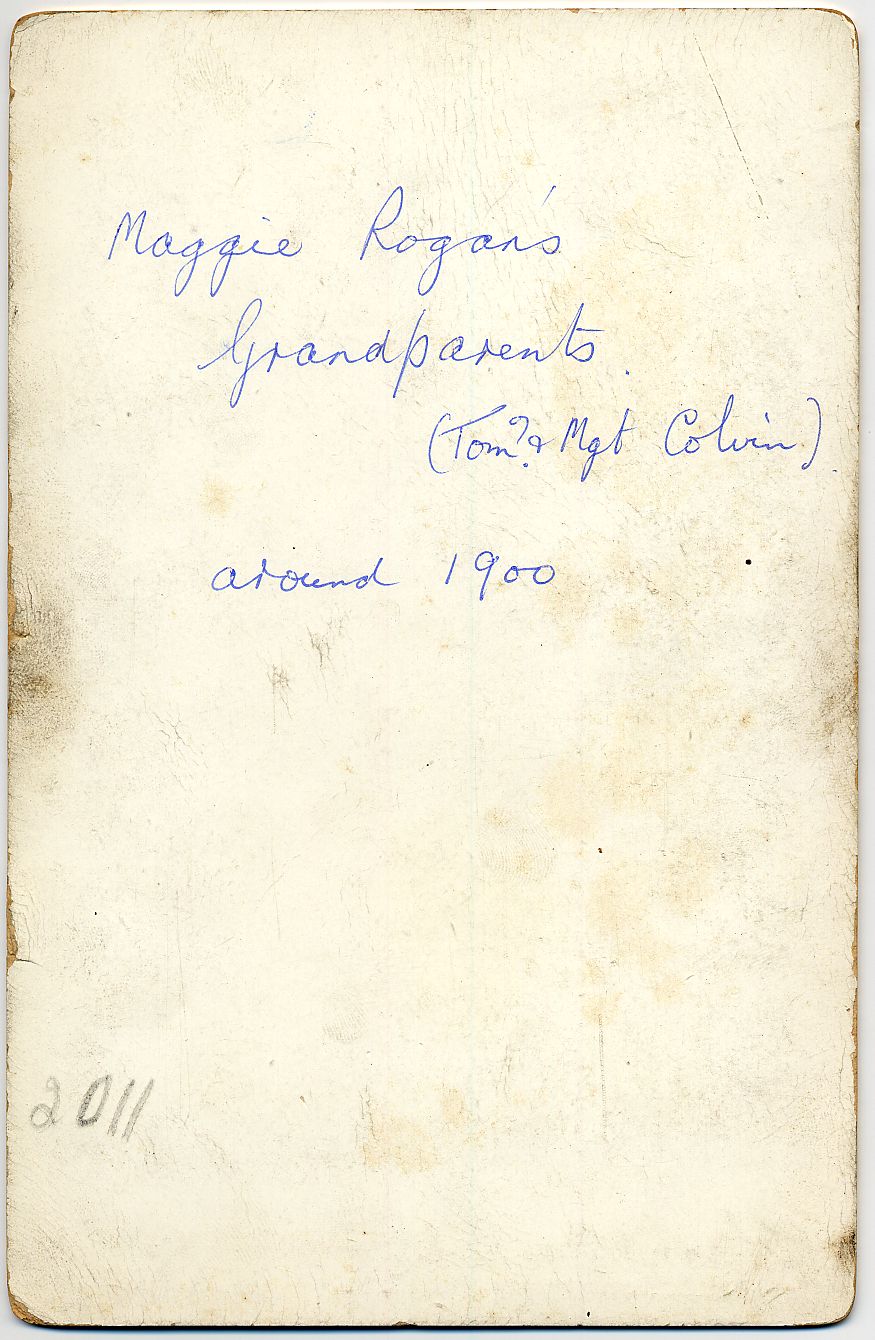 Maggie Rogan's
Grandparents.
(Tom? & Mgt Colvin)
around 1900
2011